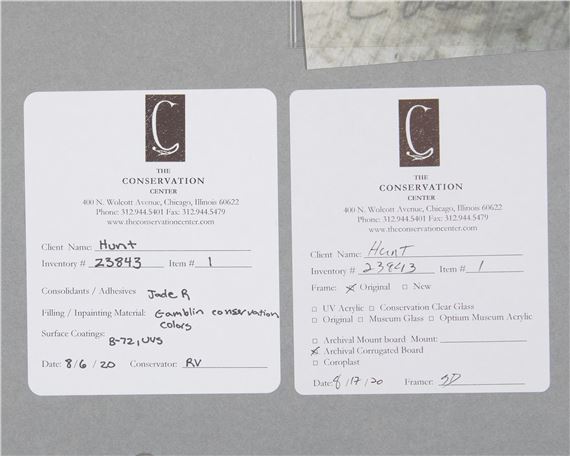 C
THE
CONSERVATION
CENTER
400 N. Wolcott Avenue, Chicago, Illinois 60622
Phone: 312.944.5401 Fax: 312.944.5479
www.theconservationcenter.com
Client Name: Hunt
Inventory # 23843 Item # 1
Consolidants / Adhesives Jade R
Filling / Inpainting Material: Gamblin conservation
colors
Surface Coatings:
B-72, UVS
Date: 8/6/20 Conservator: RV
C
THE
CONSERVATION
CENTER
400 N. Wolcott Avenue, Chicago, Illinois 60622
Phone: 312.944.5401 Fax: 312.944.5479
www.theconservationcenter.com
Client Name: Hunt
Inventory # 23843 Item # 1
Frame: Original New
UV Acrylic Conservation Clear Glass
Original Museum Glass Optium Museum Acrylic
Archival Mount board Mount:
Archival Corrugated Board
Coroplast
Date: 8/17/20 Framer: SD